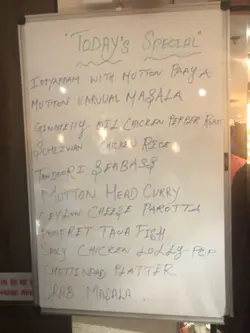 "TODAY'S SPECIAL"
IDIYAPPAM WITH MUTTON PAAYA
MUTTON VARUVAL MASALA
GINGELLY OIL CHICKEN PEPPER
SCHEZWAN CHICKEN RICE
TANDOORI SEABASS
MUTTON HEAD CURRY
CEYLON CHEESE PAROTTA
TAVA FISH
CHICKEN LOLLY-POP
CHETTINAD PLATTER
CRAB MASALA